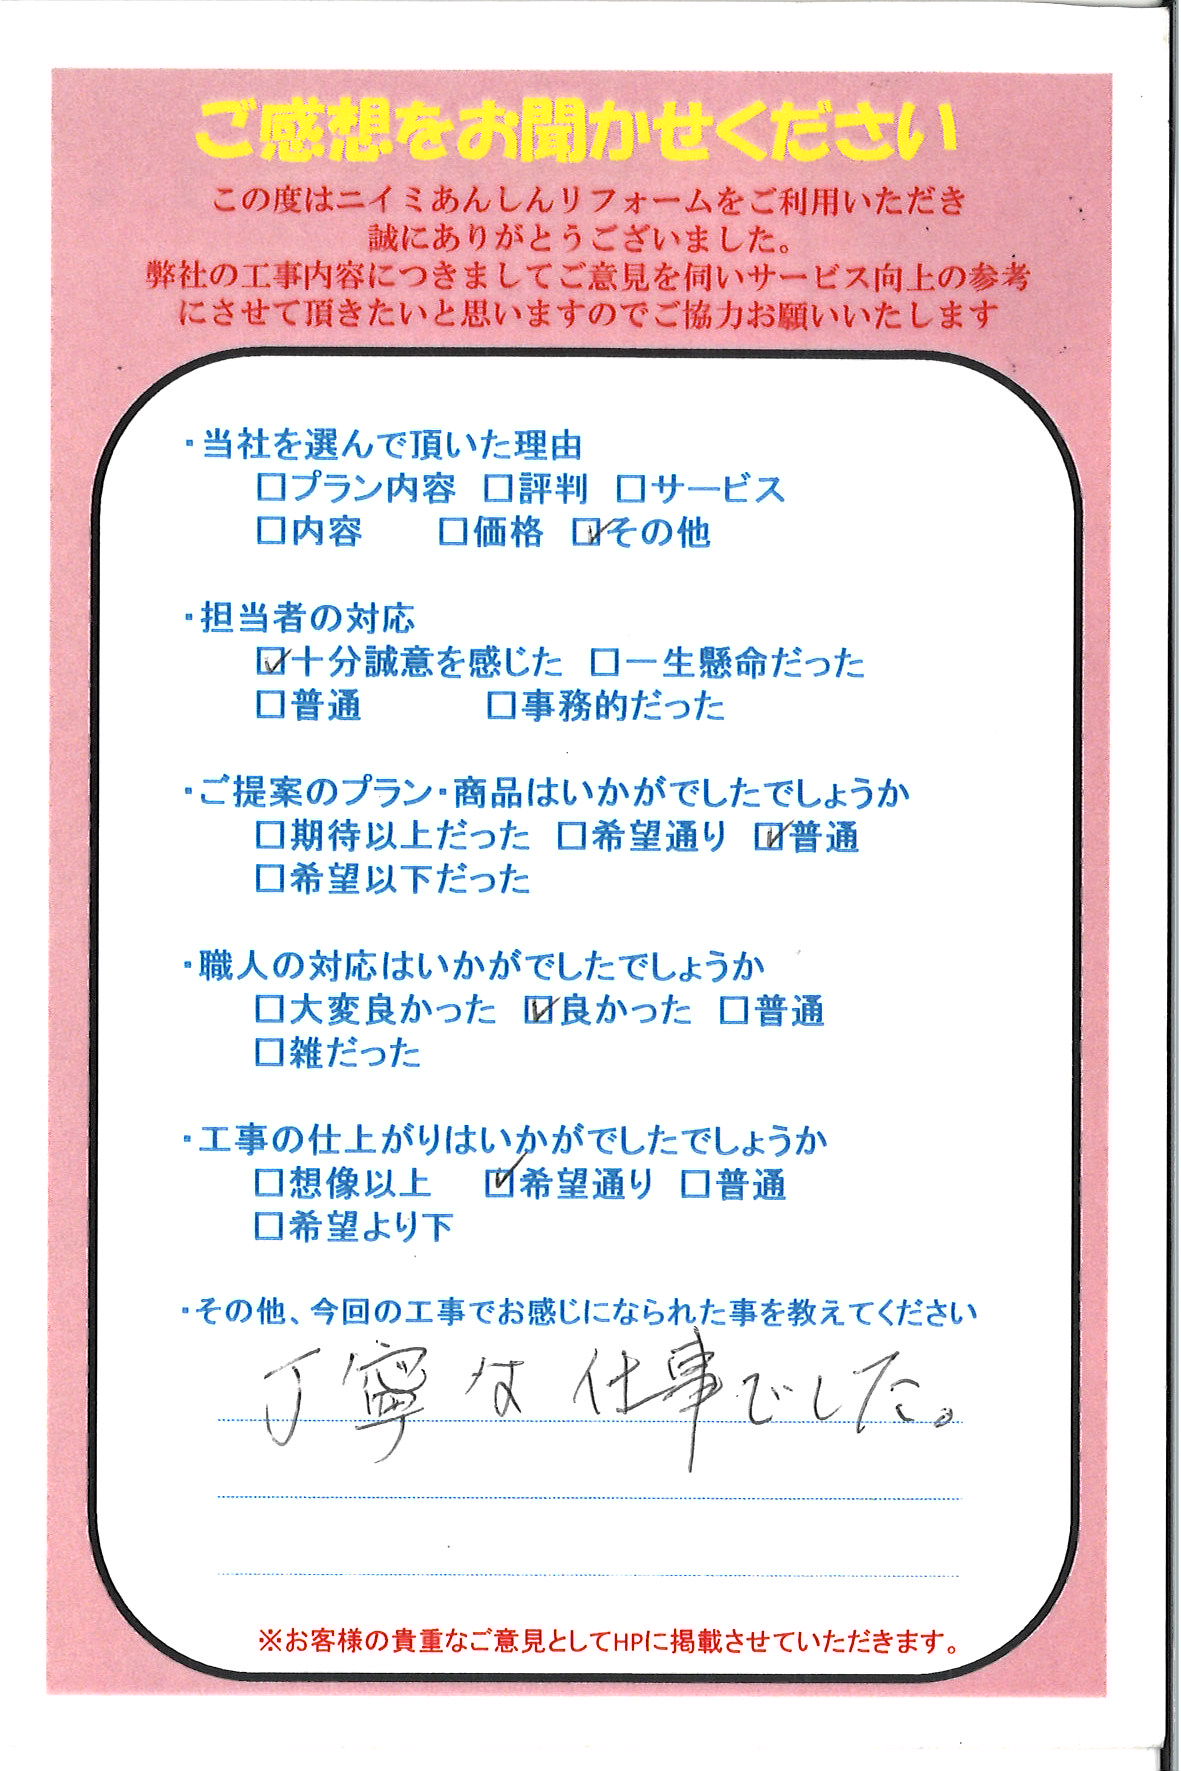 ご感想をお聞かせください
この度はニイミあんしんリフォームをご利用いただき
誠にありがとうございました。
弊社の工事内容につきましてご意見を伺いサービス向上の参考
にさせて頂きたいと思いますのでご協力お願いいたします
・当社を選んで頂いた理由
□プラン内容 □評判 □サービス
□内容 □価格 ☑その他
・担当者の対応
☑十分誠意を感じた □一生懸命だった
□普通 □事務的だった
・ご提案のプラン・商品はいかがでしたでしょうか
□期待以上だった □希望通り ☑普通
□希望以下だった
・職人の対応はいかがでしたでしょうか
□大変良かった ☑良かった □普通
□雑だった
・工事の仕上がりはいかがでしたでしょうか
□想像以上 ☑希望通り □普通
□希望より下
・その他、今回の工事でお感じになられた事を教えてください
丁寧な仕事でした。
※お客様の貴重なご意見としてHPに掲載させていただきます。